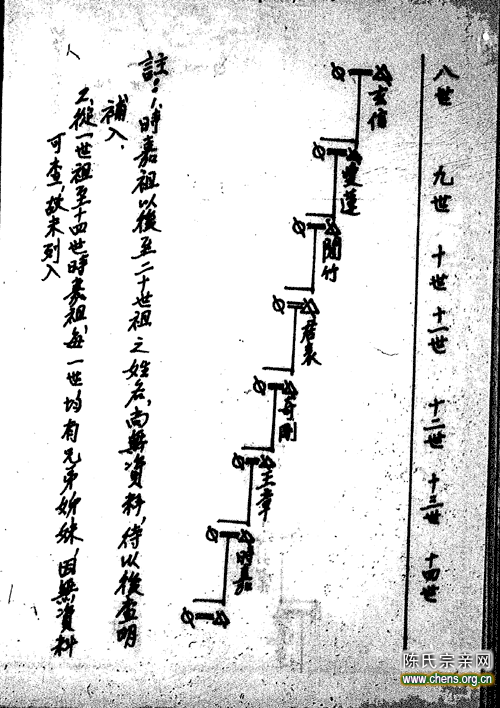 八世
九世
十世
十一世
十二世
十三世
十四世
玄信
雙蓮
閑竹
君表
奇剛
玉章
時嘉
註：1.時嘉祖以後至二十世祖之姓名，尚無資料，待以後查明
補入．
2.從一世祖至十四世時嘉祖，每一世均有兄弟姊妹，因無資料
可查，故未列入
陈氏宗亲网
www.chens.org.cn